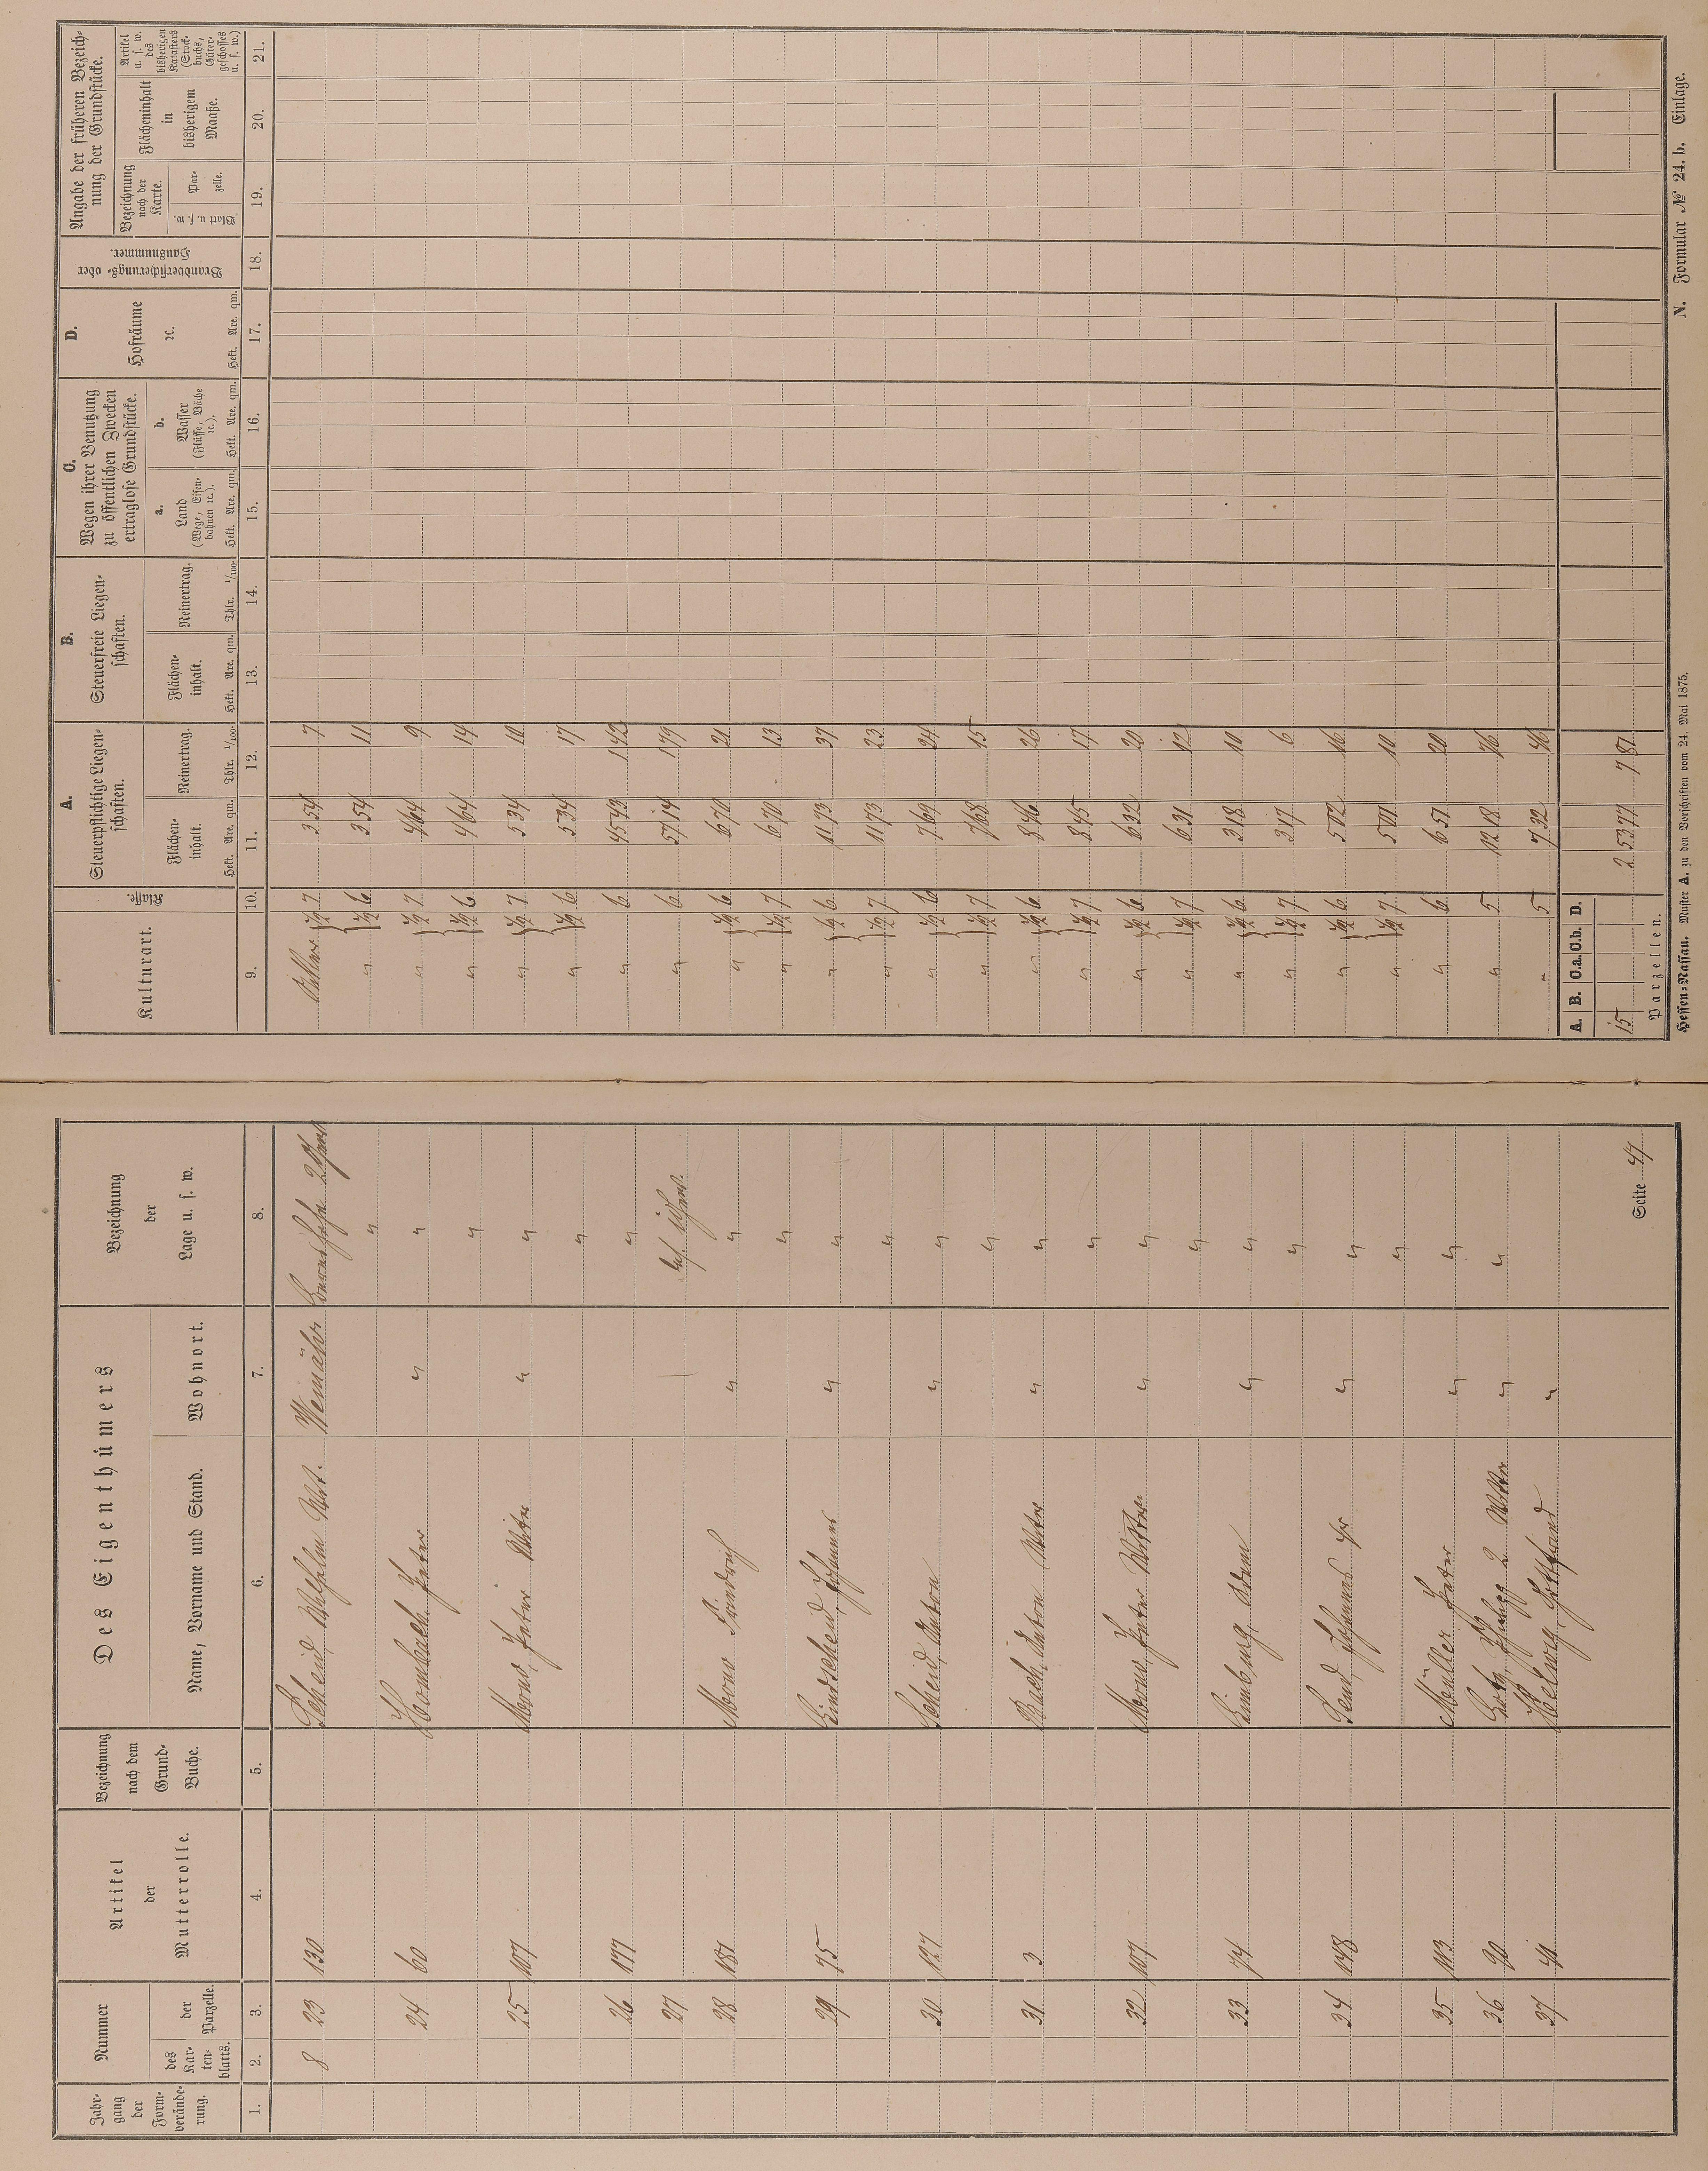 Jahr-
gang
der
Form-
verände-
rung.
Nummer
des
Kar-
ten-
blatts.
der
Parzelle.
Artikel
der
Mutterrolle.
Bezeichnung
nach dem
Grund-
Buche.
Des Eigenthümers
Name, Vorname und Stand.
Wohnort.
Bezeichnung
der
Lage u. s. w.
1. 2. 3. 4. 5. 6. 7. 8.
8 23 130 Scheid, Wilhelm Wwe. Weinähr 2 Gew.
24 60 Hombach Peter " "
25 107 Mono, Peter Witwe " "
26 177
27
28 181 Mono Friedrich " "
29 75 Lindscheid, Johannes " "
30 127 Scheid, Anton " "
31 3 Bach, Anton Witwe " "
32 107 Mono, Peter Witwe " "
33 74 Limburg, Adam " "
34 148 Johannes " "
35 113 Müller Peter " "
36 90 2. " "
37 41 Helwig, Gottfried "
Seite 47
Kulturart.
Klasse.
A.
Steuerpflichtige Liegen-
schaften.
Flächen-
inhalt.
Hekt. Are. qm.
Reinertrag.
Thlr. 1/100.
B.
Steuerfreie Liegen-
schaften.
Flächen-
inhalt.
Hekt. Are. qm.
Reinertrag.
Thlr. 1/100.
C.
Wegen ihrer Benutzung
zu öffentlichen Zwecken
ertraglose Grundstücke.
a.
Land
(Wege, Eisen-
bahnen ꝛc.).
Hekt. Are. qm.
b.
Wasser
(Flüsse, Bäche
ꝛc.).
Hekt. Are. qm.
D.
Hofräume
ꝛc.
Hekt. Are. qm.
Brandversicherungs- oder
Hausnummer.
Angabe der früheren Bezeich-
nung der Grundstücke.
Bezeichnung
nach der
Karte.
Blatt u. s. w.
Par-
zelle.
Flächeninhalt
in
bisherigem
Maaße.
Artikel
u. s. w.
des
bisherigen
Katasters
(Stock-
buchs,
Güter-
geschosses
u. s. w.)
9. 10. 11. 12. 13. 14. 15. 16. 17. 18. 19. 20. 21.
Acker 1/2 7. 3 54 7
" 1/2 6. 3 54 11
" 1/2 7. 4 64 9
" 1/2 6. 4 64 14
" 1/2 7. 5 34 10
" 1/2 6. 5 34 17
" 6. 45 43 1 42
" 6. 57 14 1 79
" 1/2 6. 6 70 21
" 1/2 7. 6 70 13
" 1/2 6. 11 73 37
" 1/2 7. 11 73 23
" 1/2 6. 7 69 24
" 1/2 7. 7 68 15
" 1/2 6. 8 46 26
" 1/2 7. 8 45 17
" 1/2 6. 6 32 20
" 1/2 7. 6 31 12
" 1/2 6. 3 18 10
" 1/2 7. 3 17 6
" 1/2 6. 5 02 16
" 1/2 7. 5 01 10
" 6. 6 51 20
" 5 12 18 76
" 5 7 32 46
A. B. C.a. C.b. D.
15 2 53 77 7 81
Parzellen.
Hessen-Nassau. Muster A. zu den Vorschriften vom 24. Mai 1875.
N. Formular № 24. b. Einlage.